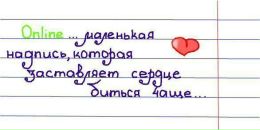 Online ... маленькая
надпись, которая
заставляет сердце
биться чаще...